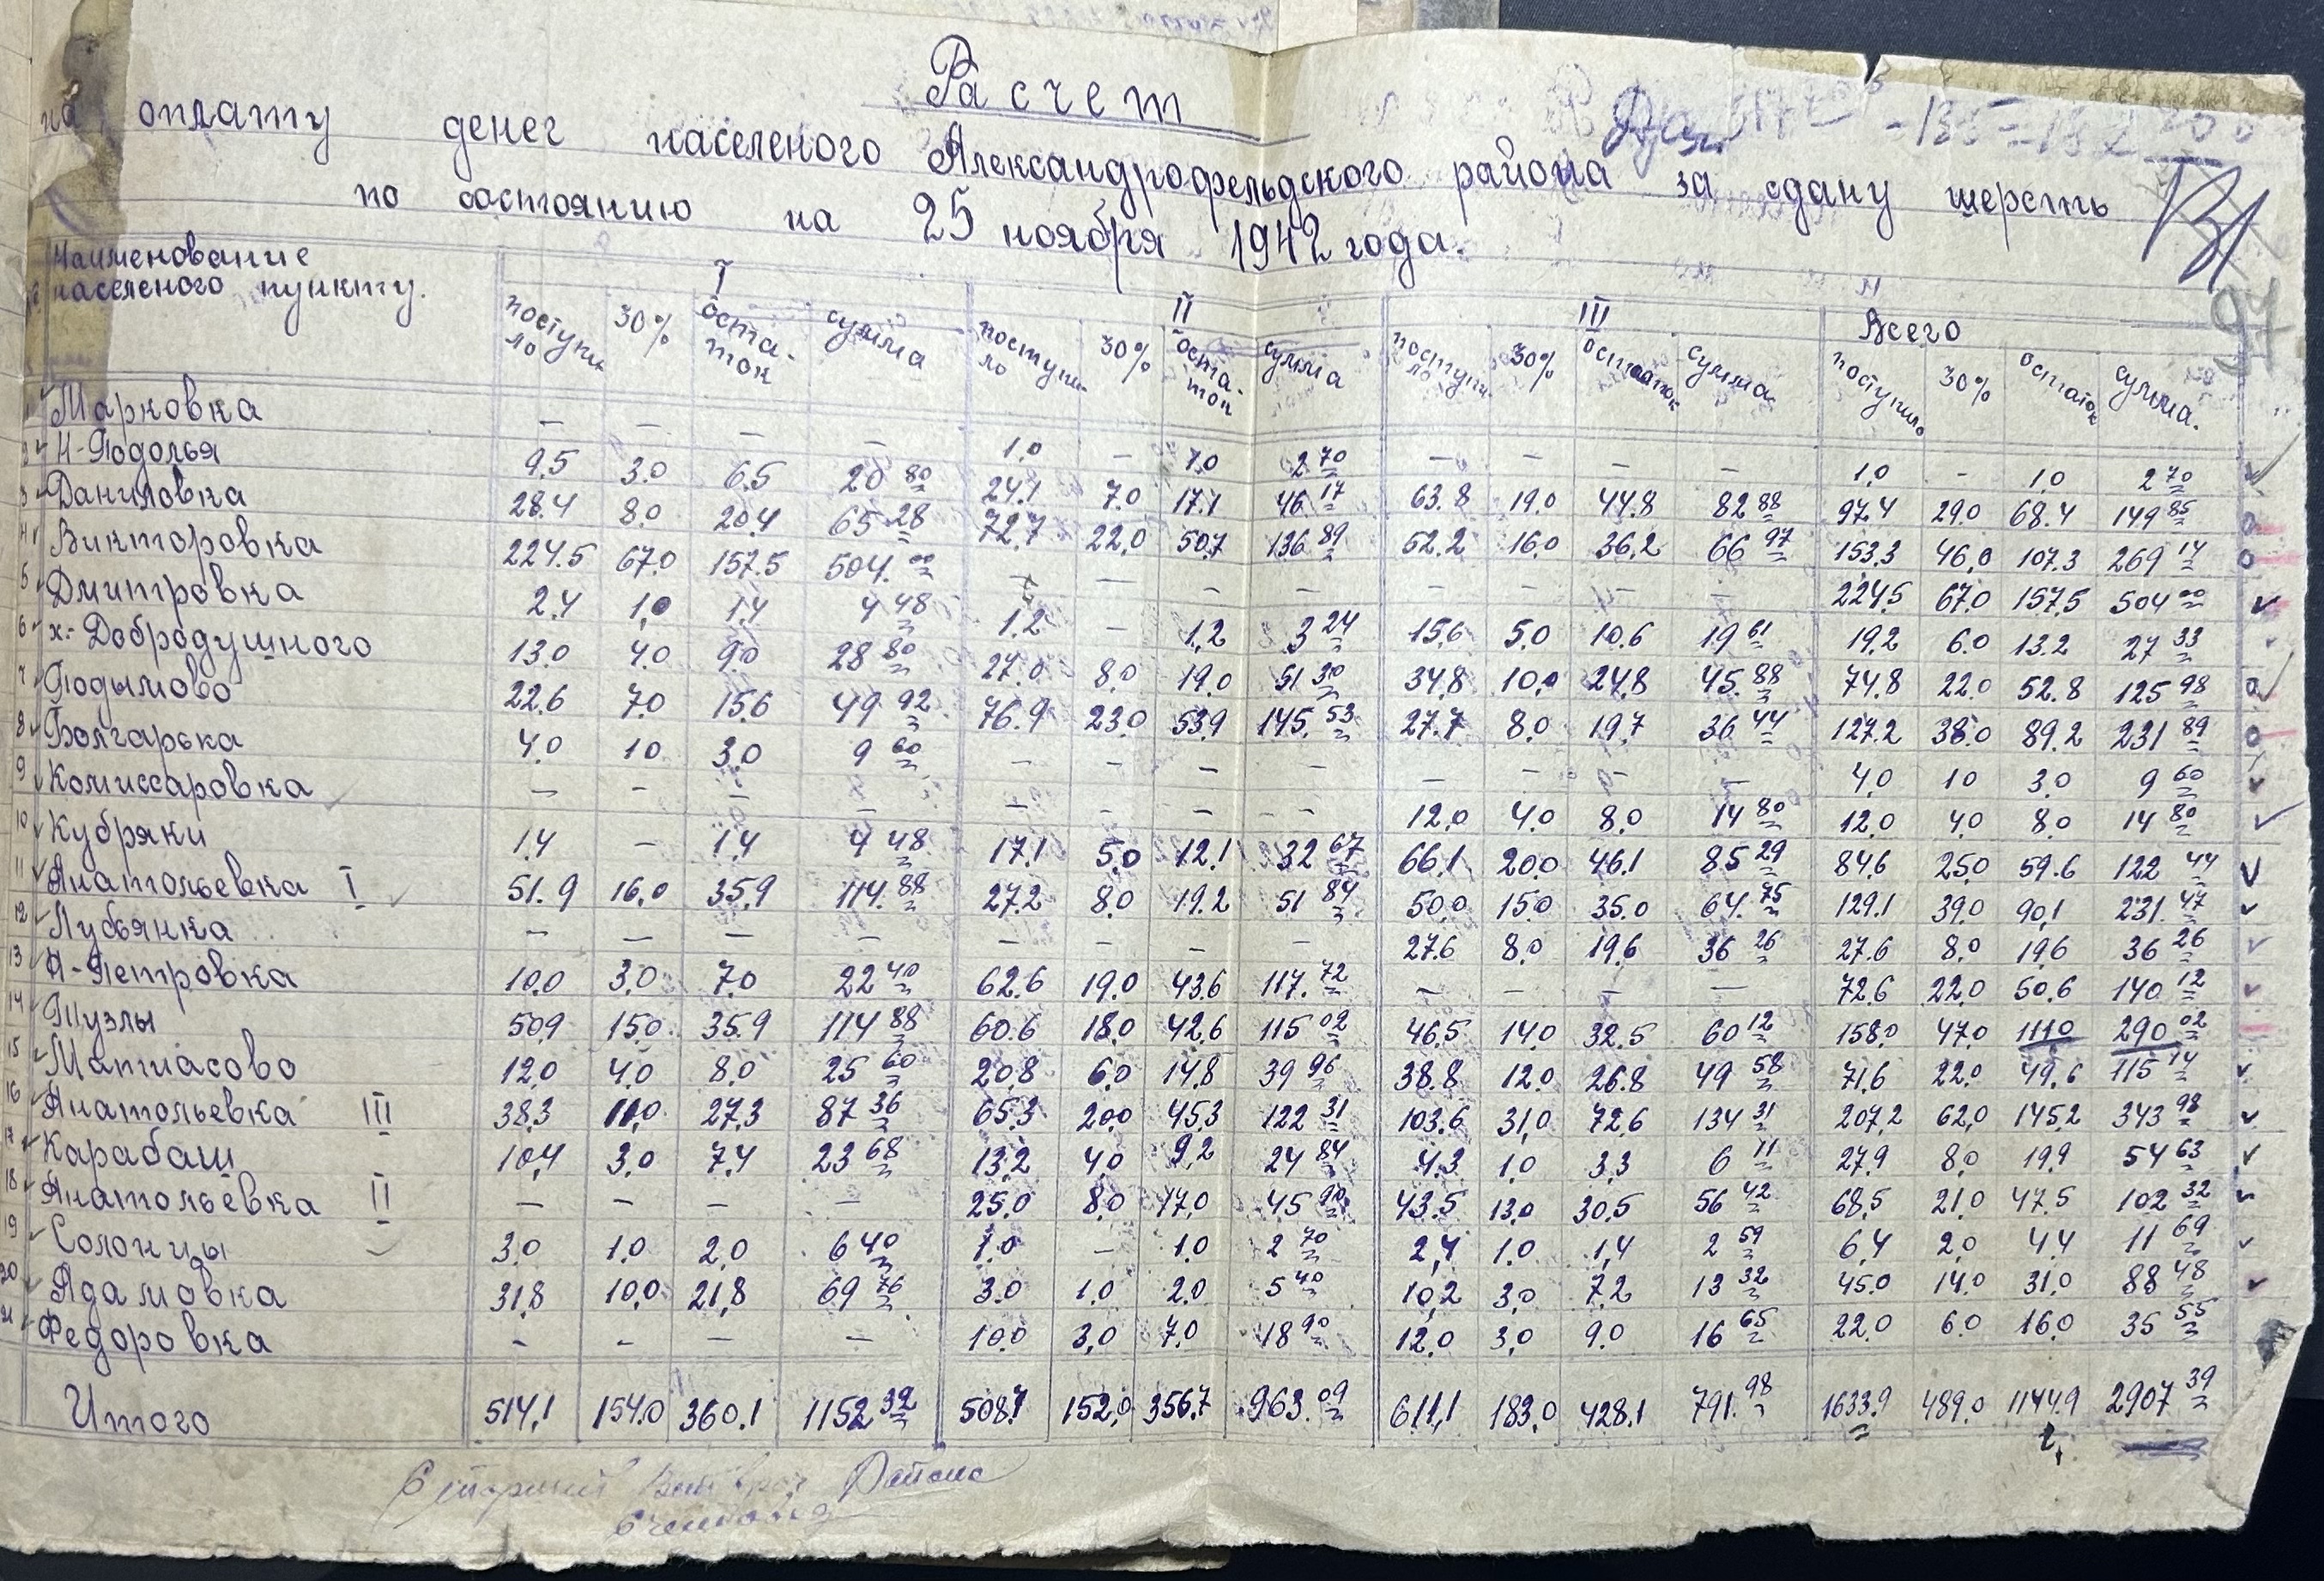 Расчет
на оплату денег населеного Александрофельдского района за сдану шерсть
по состоянию на 25 ноября 1942 года.
-135=182
97
Наименование населеного пункту. I II III Всего
поступило 30% остаток сумма поступило 30% остаток сумма поступило 30% остаток сумма поступило 30% остаток сумма.
1 Марковка — — — — 1,0 — 1,0 2 70 — — — — 1,0 - 1,0 2 70
2 Н-Подолья 9,5 3,0 6,5 20 80 24,1 7,0 17,1 46 17 63,8 19,0 44,8 82 88 97,4 29,0 68,4 149 85
3 Даниловка 28,4 8,0 20,4 65 28 72,7 22,0 50,7 136 89 52,2 16,0 36,2 66 97 153,3 46,0 107,3 269 14
4 Викторовка 224,5 67,0 157,5 504.00 — — — — — — — — 224,5 67,0 157,5 504 00
5 Дмитровка 2,4 1,0 1,4 4 48 1,2 — 1,2 3 24 15,6 5,0 10,6 19 61 19,2 6,0 13,2 27 33
6 х.-Добродушного 13,0 4,0 9,0 28 80 27,0 8,0 19,0 51 30 34,8 10,0 24,8 45.88 74,8 22,0 52,8 125 98
7 Подымово 22,6 7,0 15,6 49 92 76,9 23,0 53,9 145.53 27,7 8,0 19,7 36 44 127,2 38,0 89,2 231 89
8 Болгарска 4,0 1,0 3,0 9 60 — — — — — — — — 4,0 1,0 3,0 9 60
9 Комиссаровка — — — — — — — — 12,0 4,0 8,0 14 80 12,0 4,0 8,0 14 80
10 Кубряки 1,4 — 1,4 4 48 17,1 5,0 12,1 32 67 66,1 20,0 46,1 85 29 84,6 25,0 59,6 122 44
11 Анатольевка I 51,9 16,0 35,9 114.88 27,2 8,0 19,2 51 84 50,0 15,0 35,0 64.75 129,1 39,0 90,1 231.47
12 Лубянка — — — — — — — — 27,6 8,0 19,6 36 26 27,6 8,0 19,6 36 26
13 Н-Петровка 10,0 3,0 7,0 22 40 62,6 19,0 43,6 117.72 — — — — 72,6 22,0 50,6 140 12
14 Тузлы 50,9 15,0 35,9 114 88 60,6 18,0 42,6 115 02 46,5 14,0 32,5 60 12 158,0 47,0 111,0 290 02
15 Матиасово 12,0 4,0 8,0 25 60 20,8 6,0 14,8 39 96 38,8 12,0 26,8 49 58 71,6 22,0 49,6 115 14
16 Анатольевка III 38,3 11,0 27,3 87 36 65,3 20,0 45,3 122 31 103,6 31,0 72,6 134 31 207,2 62,0 145,2 343 98
17 Карабаш 10,4 3,0 7,4 23 68 13,2 4,0 9,2 24 84 4,3 1,0 3,3 6 11 27,9 8,0 19,9 54 63
18 Анатольевка II — — — — 25,0 8,0 17,0 45 90 43,5 13,0 30,5 56 42 68,5 21,0 47,5 102 32
19 Солонцы 3,0 1,0 2,0 6 40 1,0 — 1,0 2 70 2,4 1,0 1,4 2 59 6,4 2,0 4,4 11 69
20 Адамовка 31,8 10,0 21,8 69 76 3,0 1,0 2,0 5 40 10,2 3,0 7,2 13 32 45,0 14,0 31,0 88 48
21 Федоровка — — — — 10,0 3,0 7,0 18 90 12,0 3,0 9,0 16 65 22,0 6,0 16,0 35 55
Итого 514,1 154,0 360,1 1152 32 508,7 152,0 356,7 963.09 611,1 183,0 428,1 791.98 1633,9 489,0 1144,9 2907 39
Старший Ветврач Района